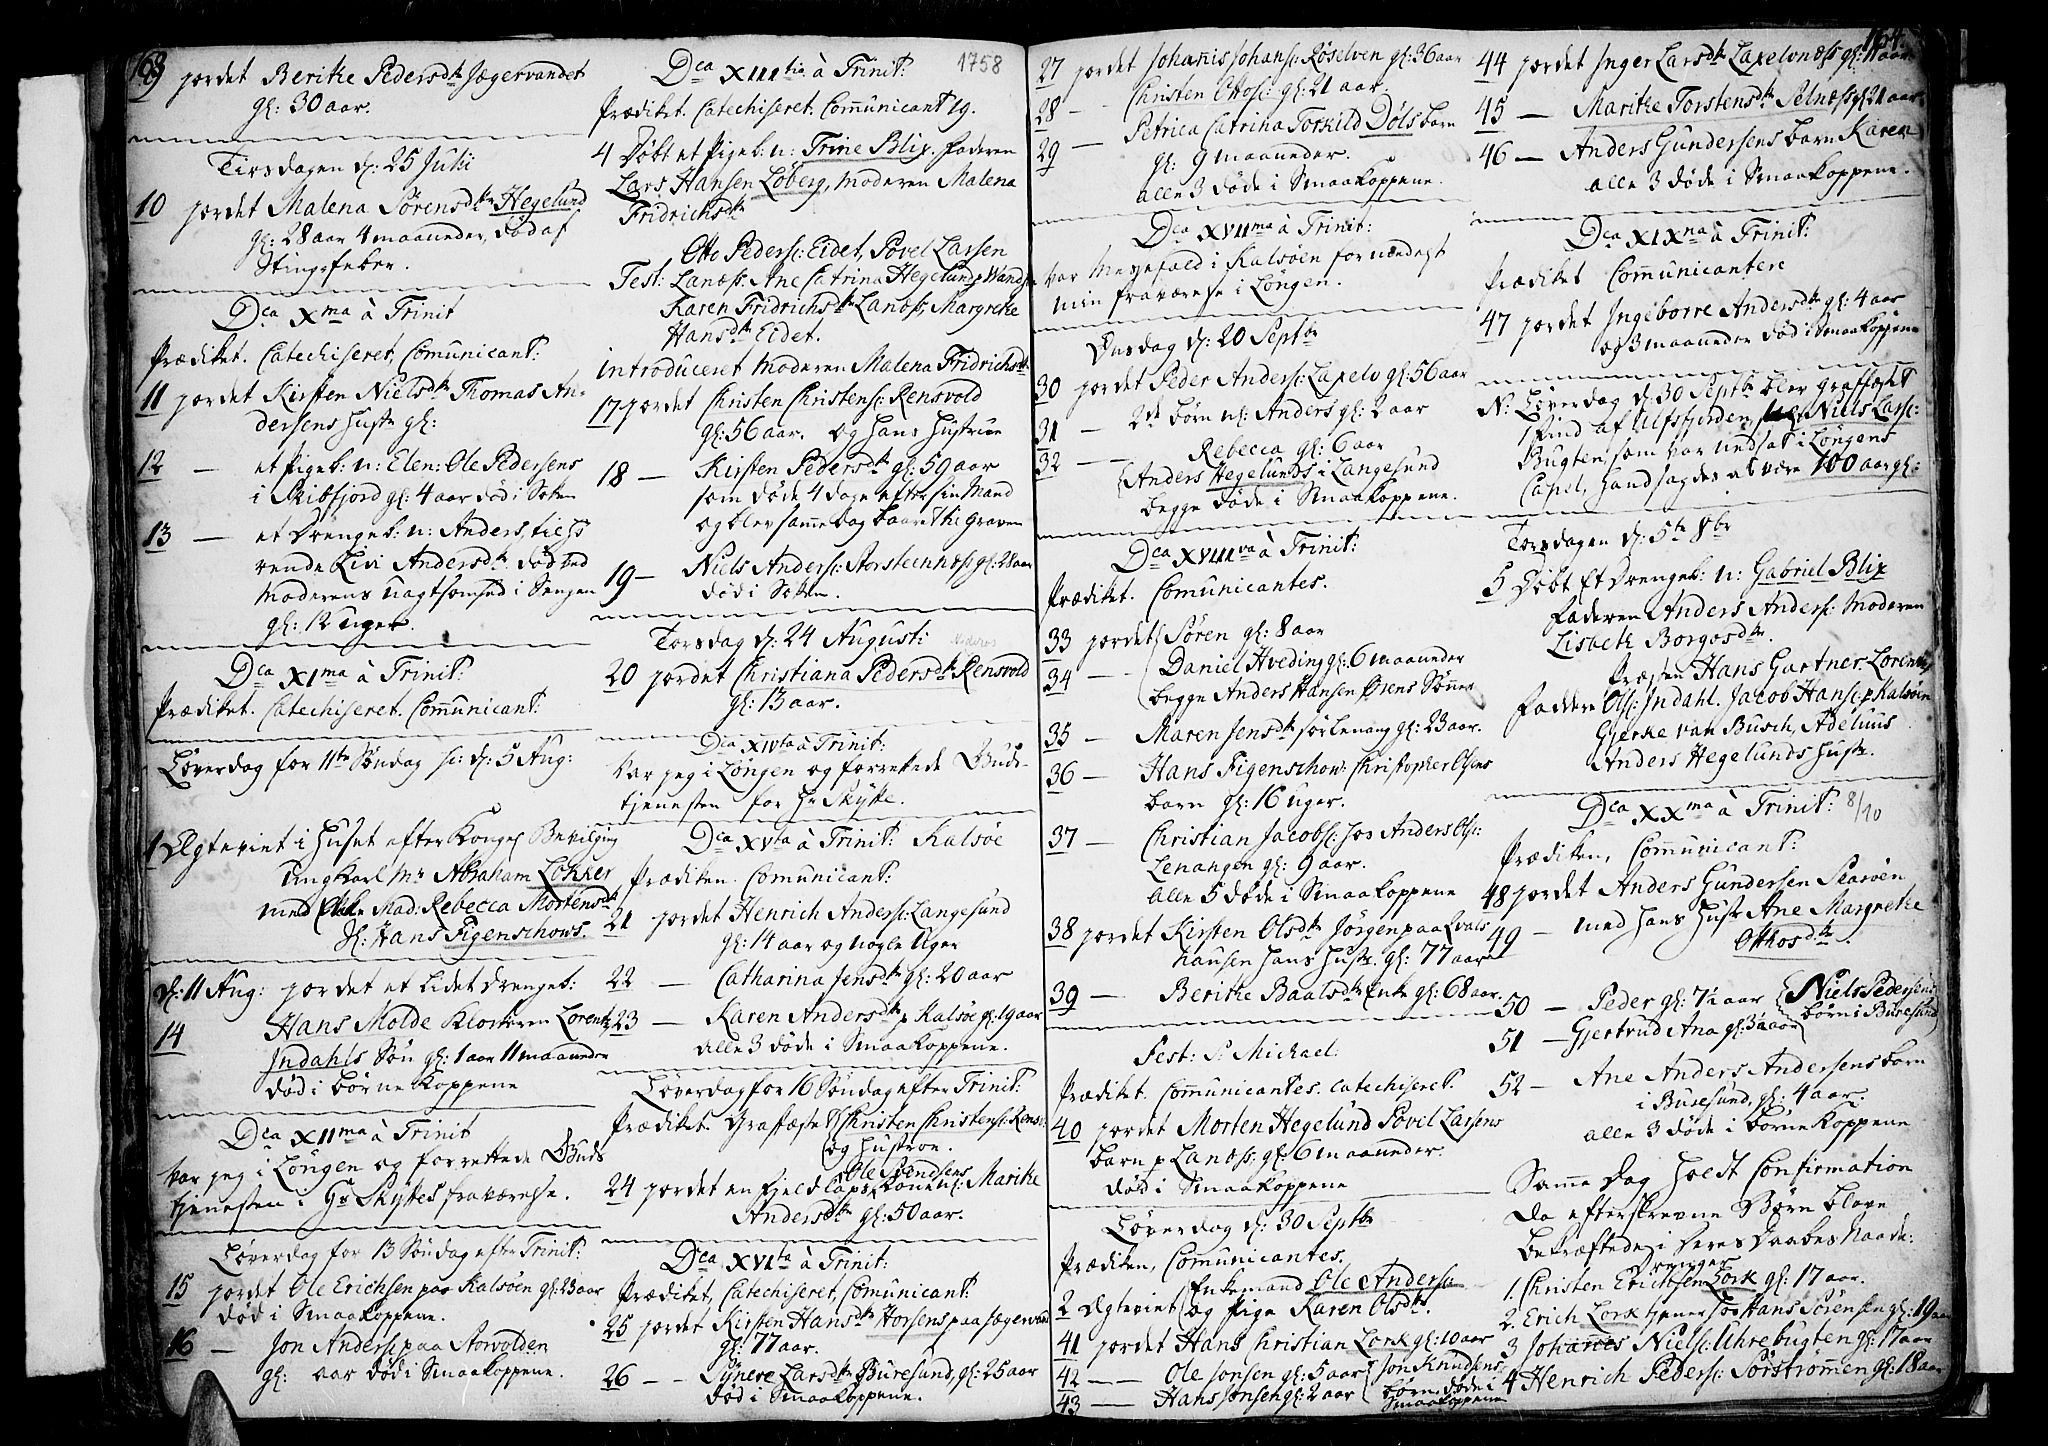 168
1758
9 jordet Beritke Pedersdtr Jægervandet
gl: 30 aar.
Tirsdagen d: 25 Julii
10 jordet Malena Sørensdtr Hegelund
gl: 28 aar 4 maaneder, død af
Stingsfeber.
Dca Xma à Trinit
Prædiket. Catechiseret, Comunicant:
11 jordet Kirsten Nielsdtr Thomas An-
dersens Hustr gl:
12 — et Pigeb: n: Elen: Ole Pedersens
i Skibfjord gl: 4 aar død i Soten
13 — et Drengeb: n: Anders,
Livi Andersdtr død ved
Moderens uagtsomhed i Sengen
gl: 12 Uger.
Dca XIma à Trinit:
Prædiket. Catechiseret. Comunicant:
Løverdag for 11te Søndag sc: d: 5 Aug:
1 Ægteviet i Huset efter Konges Bevilging
Ungkarl Mr Abraham Lokker
med Mad: Rebecca Mortensdtr
Hans Figenschows.
d: 11 Aug: jordet et lidet Drengeb:
14 Hans Molde Klokkeren Lorentz
Indahls Søn gl: 1 aar 11 maaneder
død i Børne Koppene
Dca XIIma à Trinit
Var jeg i Løngen og forrettede Guds
tjenesten i Hr Skyttes fraværelse.
Løverdag for 13 Søndag efter Trinit:
15 jordet Ole Erichsen paa Kalsøen gl: 23 aar
død i Smaakoppene.
16 — Jon Anders: paa Storvolden
gl: aar død i Smaakoppene.
Dca XIIItia à Trinit:
Prædiket. Catechiseret. Comunicant 19.
4 Døbt et Pigeb: n: Trine Blix. Faderen
Lars Hansen Loberg, Moderen Malena
Fridrichsdtr
Otto Peders: Eidet, Povel Larsen
Test: Lanæss: Ane Catrina Hegelund
Karen Fridrichsdtr Lanæss, Margreke
Hansdtr Eidet.
introduceret Moderen Malena Fridrichsdtr
17 jordet Christen Christens: Rensvold
gl: 56 aar. og hans Hustrue
18 — Kirsten Pedersdtr gl: 59 aar
som døde 4 dage efter sin Mand
og blev samme dag baaren til graven
19 — Niels Anders: Storsteennæss gl: 28 aar
død i Soten.
Torsdag d: 24 Augusti:
20 jordet Christiana Pedersdtr Rensvold
gl: 13 aar.
Dca XIVta à Trinit:
Var jeg i Løngen og forrettede Guds-
tjenesten for Hr Skytte.
Dca XVta à Trinit: Kalsøe
Prædiken. Comunicant:
21 jordet Henrich Anders: Langesund
gl: 14 aar og nogle Uger
22 — Catharina Jensdtr gl: 20 aar
23 — Karen Andersdtr p Kalsøe gl: 19 aar
alle 3 døde i Smaakoppene.
Løverdag for 16 Søndag efter Trinit:
Prædiket. Graffæstet Christen Christens: Rens:
og Hustroe.
Ole
24 jordet en Fjeldlaps Kone n: Maritke
Andersdtr gl: 50 aar.
Dca XVIta à Trinit:
Prædiket, Catechiseret, Comunicant:
25 jordet Kirsten Hansdtr Horsens paa Jægervand
gl: 77 aar.
26 — Synere Larsdtr Buresund, gl: 25 aar
død i Smaakoppene.
27 jordet Johannis Johans: Røselven gl: 36 aar
28 — Christen Ottos: gl: 21 aar.
29 — Petrica Catrina Torkild Døls barn
gl: 9 maaneder.
alle 3 døde i Smaakoppene.
Dca XVIIma à Trinit:
Var Messefald i Kalsøen formedelst
min fraværelse i Løngen.
Onsdag d: 20 Septbr
30 jordet Peder Anders: Laxelv gl: 56 aar
31 — 2de børn n: Anders gl: 2 aar
32 — Rebecca gl: 6 aar
Anders Hegelunds i Langesund
begge døde i Smaakoppene.
Dca XVIIIva à Trinit:
Prædiket. Comunicantes.
33 jordet Søren gl: 8 aar
34 — Daniel Hveding gl: 6 maaneder
begge Anders Hansen Ørens Sønner
35 — Maren Jensdtr Sørlenang gl: 23 aar.
36 — Hans Figenschow: Christopher Olsens
barn gl: 16 uger.
37 — Christian Jacobs: hos Anders Ols:
Lenangen gl: 9 aar.
alle 5 døde i Smaakoppene
38 jordet Kirsten Olsdtr Jørgen paa Qvals
hausen hans Hustr. gl: 77 aar
39 — Beritke Baalsdtr Enke gl: 68 aar.
Fest: S: Michael:
Prædiket. Communicantes. Catechiseret.
40 jordet Morten Hegelund Povel Larsens
barn p Lanæss: gl: 6 maaneder.
død i Smaakoppene
Løverdag d: 30 Septbr
Prædiken, Comunicantes.
Enkemand Ole Anders:
2 Ægteviet og Pige Karen Olsdtr.
41 jordet Hans Christian Lork gl: 10 aar
42 — Ole Jonsen gl: 5 aar Jon Knudsens
43 — Hans Jonsen gl: 2 aar børn, døde i
Smaakoppene
44 jordet Inger Larsdtr Laxelvnæss gl: aar
45 — Maritke Torstensdtr Selnæss gl: 21 aar
46 — Anders Gundersens barn Karen
alle 3 døde i Smaakoppene.
Dca XIXna à Trinit:
Prædiket Comunicantere
47 jordet Ingeborre Andersdtr gl: 4 aar
og 3 maaneder død i Smaakoppene
N: Løverdag d: 30 Septbr blev graffæstet
1 Find af Ulfsfjorden, Niels Lars:
Bugten, som var nedsat i Løngens
Capel, hand sagdes at være 100 aar gl:
Torsdagen d: 5te 8br
5 Døbt Et Drengeb: n: Gabriel Blix
Faderen Anders Anders: Moderen
Lisbeth Borgosdtr.
Præsten Hans Gartner. Lorentz
Faddere Ols: Indahl. Jacob Hans: p Kalsøen
Gjerke van Busch, Adeluus
Anders Hegelunds Hustr.
Dca XXma à Trinit: 8/10
Prædiken, Comunicant:
48 jordet Anders Gundersen Skarøen
49 — med hans Hustr Ane Margretke
Otthosdtr.
50 — Peder gl: 7½ aar Niels Pedersens
51 — Gjertrud Ana gl: 3 aar børn i Buresund
52 — Ane Anders Andersens barn
i Buresund, gl: 4 aar.
alle 3 døde i Børne Koppene
Samme Dag holdt Confirmation
da efterskrevne Børn bleve
bekræftede i deres Daabes Naade:
1. Christen Erichsen Lork gl: 17 aar.
2. Erich Lork tjener hos Hans Sørensen gl: 19 aar
3 Johannes Niels: Uhrebugten gl: 17 aar
4 Henrich Peders: Sørstrømen gl: 18 aar